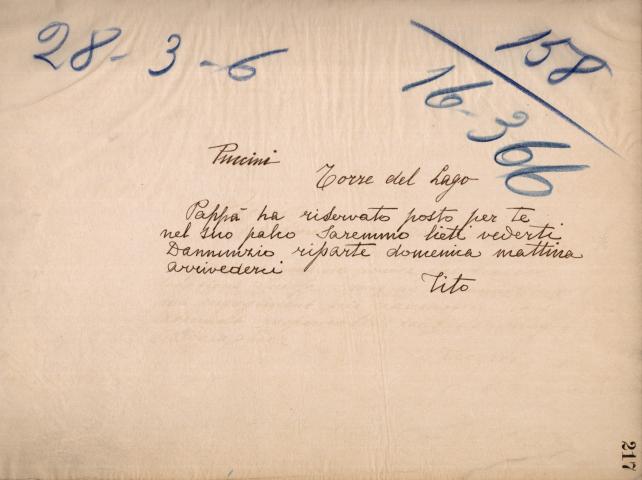 28-3-6
158
16-366
Puccini
Torre del Lago
Pappà ha riservato posto per te
nel suo palco Saremmo lieti vederti
Dannunzio riparte domenica mattina
arrivederci
Tito
217